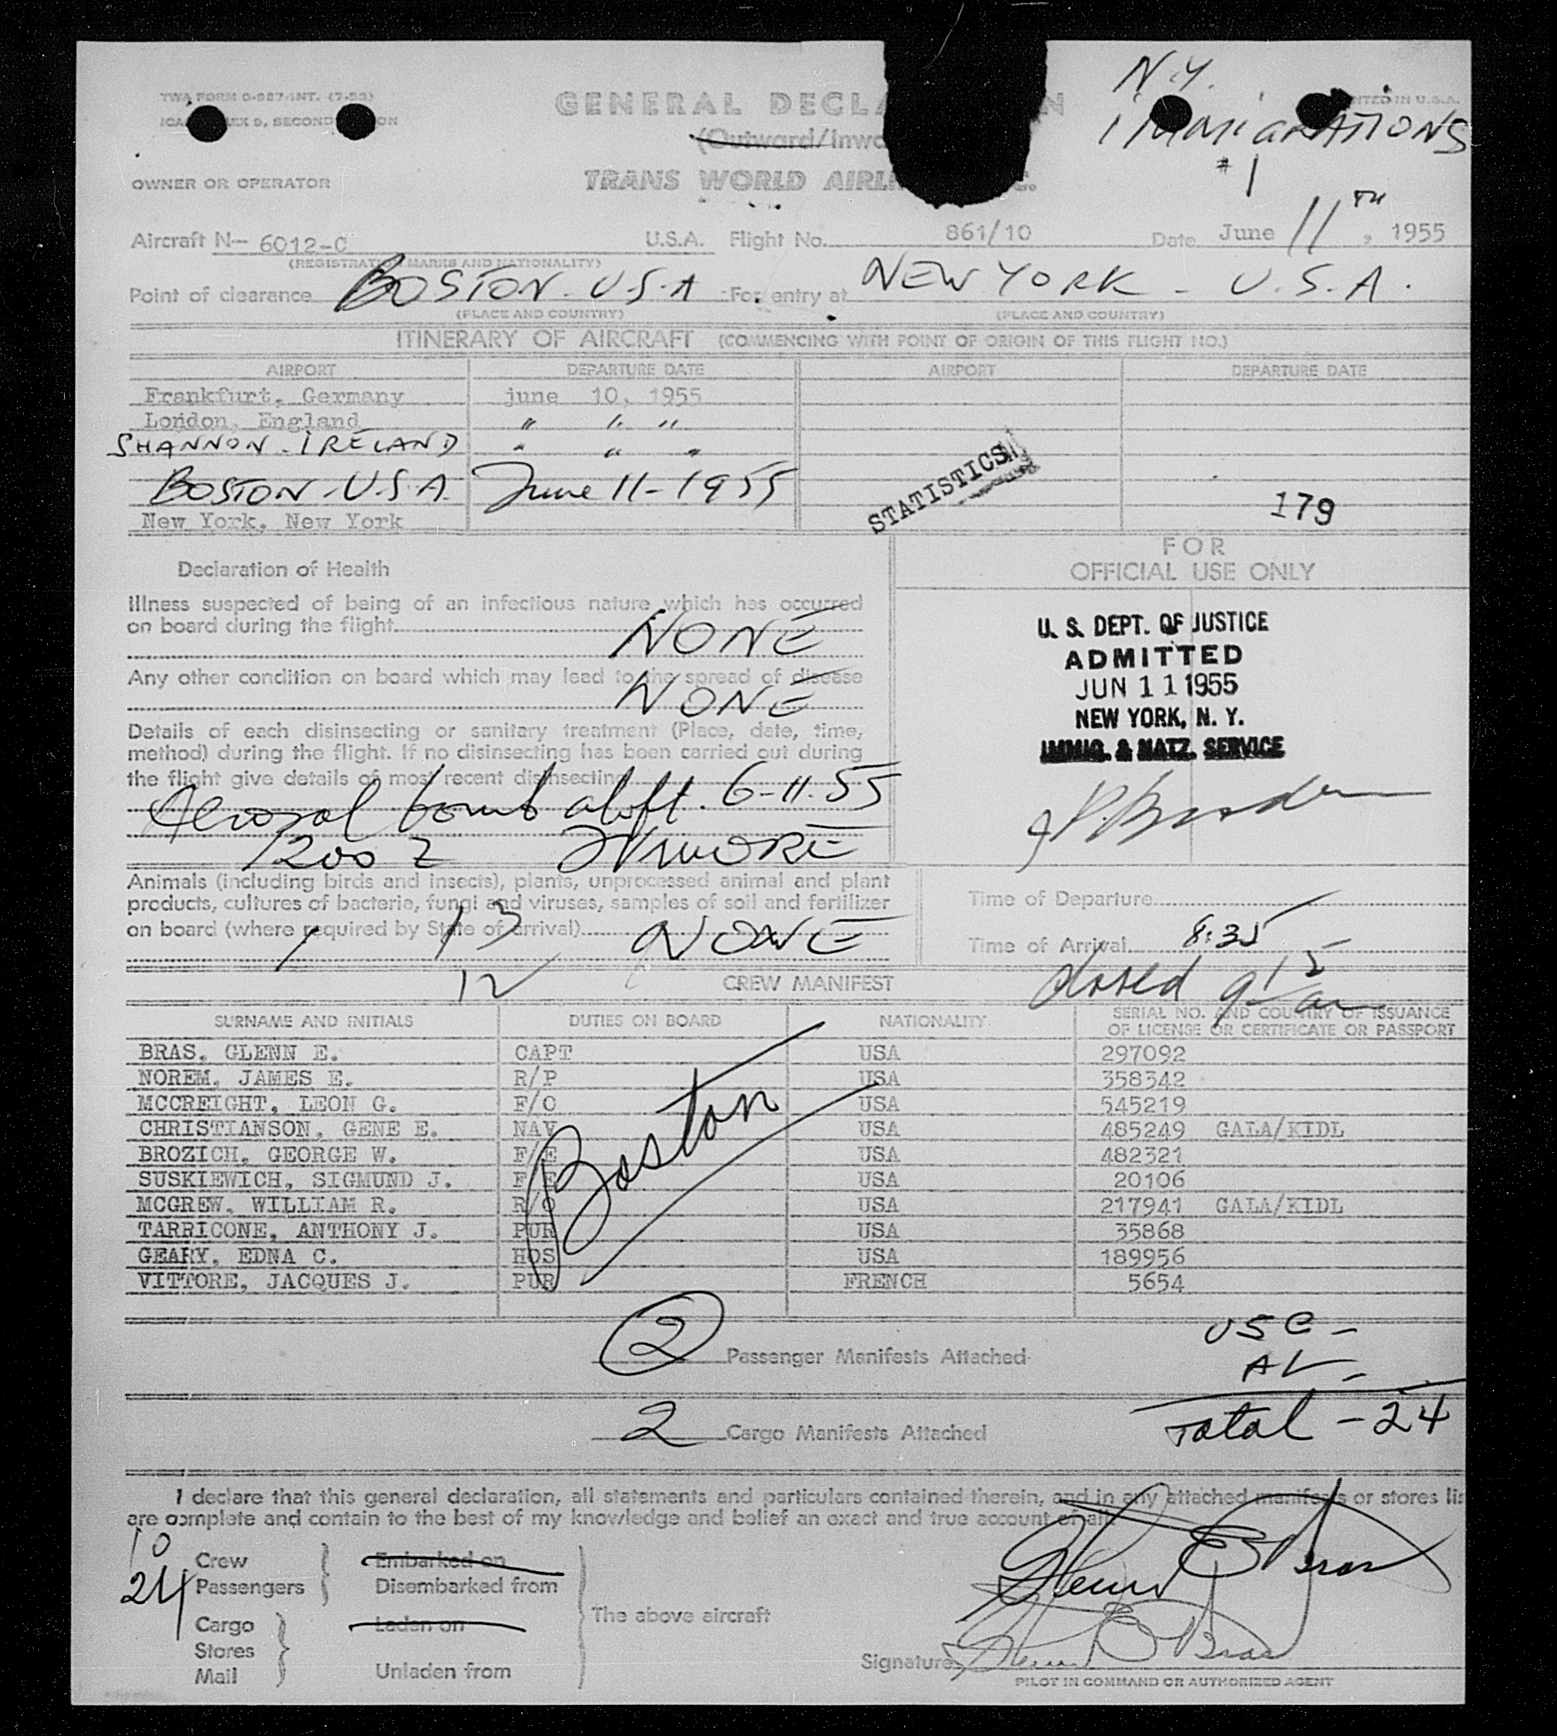 N.Y.
TWA FORM O-987-INT. (7-53)
GENERAL DECLA N
PRINTED IN U.S.A.
IMMIGRATIONS
(Outward/Inwa
#1
OWNER OR OPERATOR
TRANS WORLD AIRLINES, INC.
Aircraft N- 6012-C U.S.A. Flight No. 861/10 Date June 11TH, 1955
(REGISTRATION MARKS AND NATIONALITY)
Point of clearance BOSTON - U.S.A For entry at NEW YORK - U.S.A.
(PLACE AND COUNTRY) (PLACE AND COUNTRY)
ITINERARY OF AIRCRAFT (COMMENCING WITH POINT OF ORIGIN OF THIS FLIGHT NO.)
AIRPORT DEPARTURE DATE AIRPORT DEPARTURE DATE
Frankfurt, Germany june 10, 1955
London, England " " "
SHANNON - IRELAND " " "
STATISTICS
BOSTON - U.S.A. June 11-1955
179
New York, New York
FOR
OFFICIAL USE ONLY
Declaration of Health
Illness suspected of being of an infectious nature which has occurred
on board during the flight NONE
Any other condition on board which may lead to the spread of disease
NONE
Details of each disinsecting or sanitary treatment (Place, date, time,
method) during the flight. If no disinsecting has been carried out during
the flight give details of most recent disinsecting
Aerosol bomb aloft. 6-11-55
1200 Z
U. S. DEPT. OF JUSTICE
ADMITTED
JUN 11 1955
NEW YORK, N. Y.
IMMIG. & NATZ. SERVICE
Animals (including birds and insects), plants, unprocessed animal and plant
products, cultures of bacteria, fungi and viruses, samples of soil and fertilizer
on board (where required by State of arrival) NONE
1 13
12
Time of Departure
Time of Arrival 8:35
closed 9 15 am
CREW MANIFEST
SURNAME AND INITIALS DUTIES ON BOARD NATIONALITY SERIAL NO. AND COUNTRY OF ISSUANCE
OF LICENSE OR CERTIFICATE OR PASSPORT
BRAS, GLENN E. CAPT USA 297092
NOREM, JAMES E. R/P USA 358342
MCCREIGHT, LEON G. F/O USA 545219
CHRISTIANSON, GENE E. NAV USA 485249 GALA/KIDL
BROZICH, GEORGE W. F/E USA 482321
SUSKIEWICH, SIGMUND J. F/E USA 20106
MCGREW, WILLIAM R. R/O USA 217941 GALA/KIDL
TARRICONE, ANTHONY J. PUR USA 35868
GEARY, EDNA C. HOS USA 189956
VITTORE, JACQUES J. PUR FRENCH 5654
Boston
2 Passenger Manifests Attached
USC -
AL -
Total - 24
2 Cargo Manifests Attached
I declare that this general declaration, all statements and particulars contained therein, and in any attached manifests or stores lis
are complete and contain to the best of my knowledge and belief an exact and true account of all
10 Crew Embarked on
24 Passengers Disembarked from
The above aircraft
Cargo Laden on
Stores
Mail Unladen from
Glenn E Bras
Signature Glenn E Bras
PILOT IN COMMAND OR AUTHORIZED AGENT